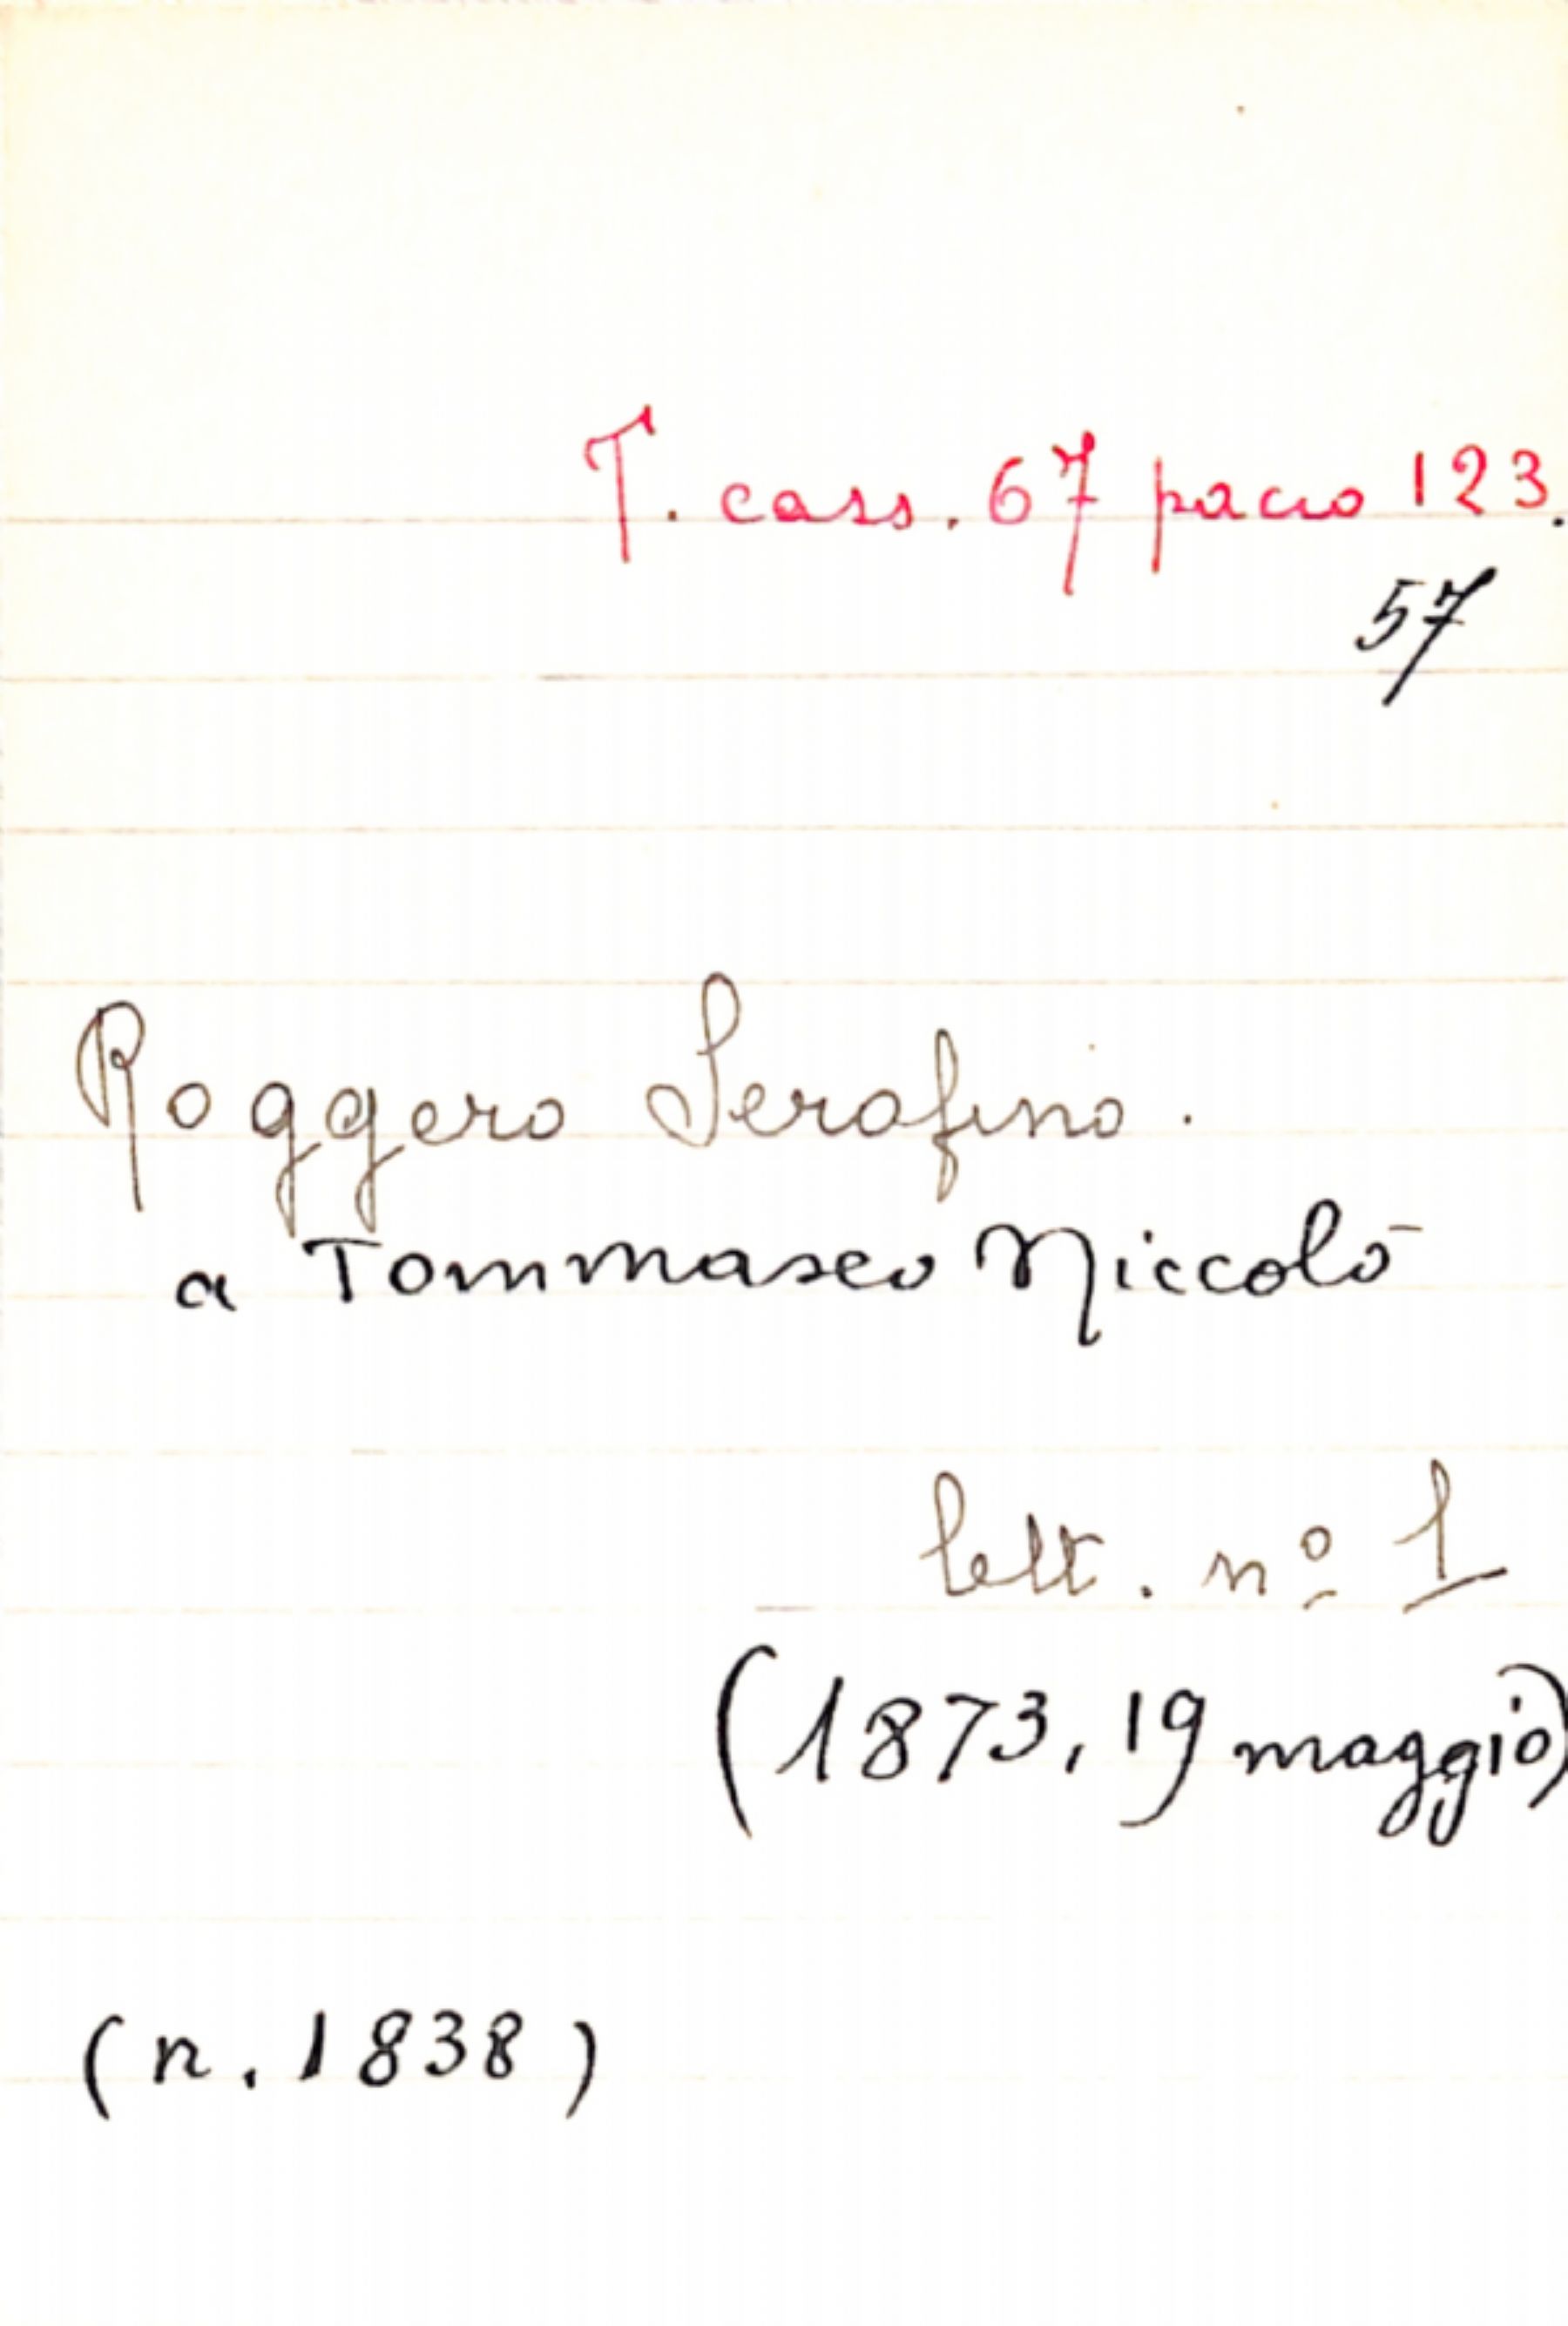 T. cass. 67 pacco 123.
57
Roggero Serafino.
a Tommaseo Niccolò
lett. nº 1
(1873, 19 maggio)
(n. 1838)